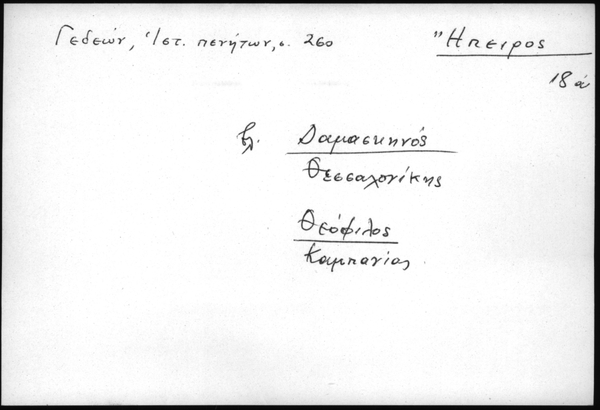 Γεδεών, Ἱστ. πενήτων, σ. 260
Ἤπειρος
18 α
βλ. Δαμασκηνός
Θεσσαλονίκης
Θεόφιλος
Καμπανίας